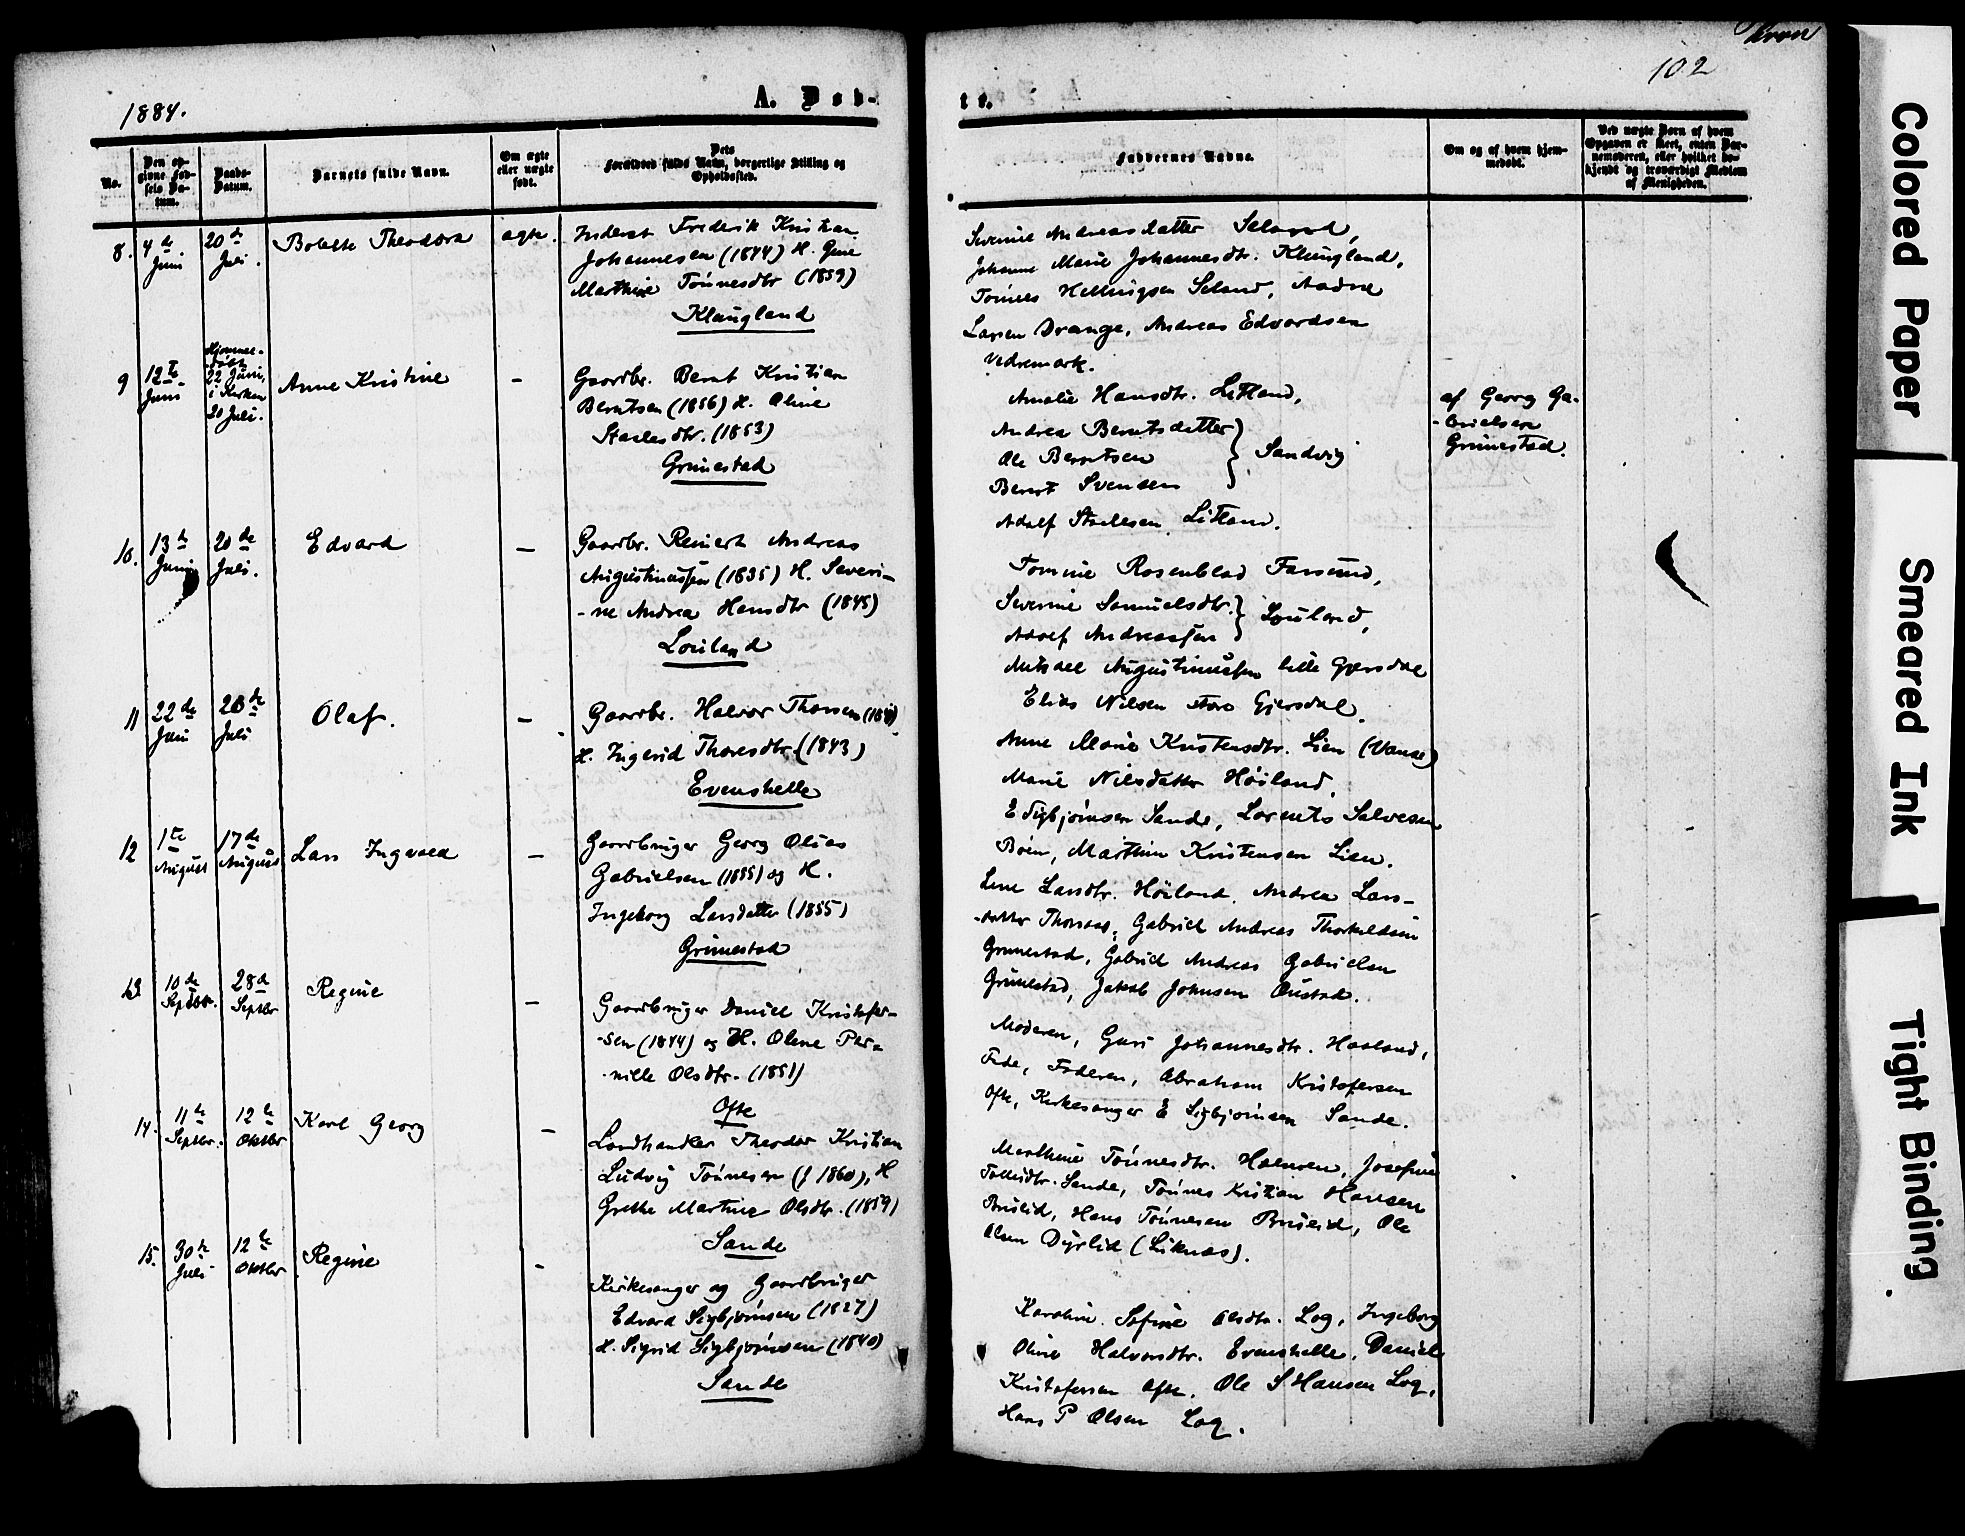 1884.
A. Døb-
No.
Den op-
givne Fød-
sels Da-
tum.
Daabs-
Datum.
Barnets fulde Navn.
Om ægte
eller uægte
født.
Dets
Forældres fulde Navn, borgerlige Stilling og
Opholdssted.
8.
4de
Juni
20de
Juli.
Bolette Theodora
ægte.
Inderst Fredrik Kristian
Johannesen (1844) H. Gine
Marthine Tönnesdtr (1859)
Klungland
9
12te
Juni
Hjemme-
døbt
22 Juni,
i Kirken
20 Juli.
Anne Kristine
-
Gaardbr. Bernt Kristian
Berntsen (1856) H. Oline
Staalesdtr. (1853)
Grimestad
10.
13de
Juni
20de
Juli.
Edvard
-
Gaardbr. Reinert Andreas
Augustinussen (1835) H. Severi-
-ne Andrea Hansdtr (1845)
Louland
11
22de
Juni
20de
Juli
Olaf.
-
Gaardbr. Halvor Thorsen
H. Ingerid Thoresdtr. (1843)
Evenshelle
12
1te
August
17de
August
Lars Ingvald
-
Gaardbruger Georg Olias
Gabrielsen (1855) og H.
Ingeborg Larsdatter (1855)
Grimestad
13
10de
Septbr.
28d
Septbr
Regine
-
Gaardbruger Daniel Kristofer-
-sen (1844) og H. Oline Per-
-nille Olsdtr. (1851)
Ofte
14.
11te
Septbr.
12te
Oktbr
Karl Georg
-
Landhandler Theodor Kristian
Ludvig Tönnesen (f 1860), H
Grethe Martine Olsdtr. (1859)
Sande
15.
30te
Juli
12te
Oktbr
Regine
-
Kirkesanger og Gaardbruger
Edvard Sigbjörnsen (1827)
H. Sigrid Sigbjörnsen (1840)
Sande
102
te.
Faddernes Navne.
Om og af hvem hjem-
medøbt.
Ved uægte Børn af hvem
Opgaven er skeet, enten Bar-
nemoderen, eller hvilket be-
kjendt og troværdigt Medlem
af Menigheden.
Severine Andreasdatter Seland,
Johanne Marie Johannesdtr. Klungland,
Tönnes Helmigsen Seland, Aadne
Larsen Drange, Andreas Edvardsen
Vedremark.
Amalie Hansdtr. Litland,
Andrea Berntsdatter
Ole Berntsen } Sandvig
Bernt Svensen
Adolf Staalesen Litland.
af Georg Ga-
-brielsen
Grimestad.
Tomine Rosenblad Farsund,
Severine Samuelsdtr. } Louland,
Adolf Andreassen
Mikael Augustinussen lille Gjersdal
Elias Nilsen store Gjersdal.
Anne Marie Kristensdtr. Lien (Vanse)
Marie Nilsdatter Höiland,
E Sigbjörnsen Sande, Lorents Salvesen
Böen, Marthin Kristensen Lien.
Lene Larsdtr. Höiland. Andrea Lars-
-datter Thorsaas, Gabriel Andreas Thorkildsen
Grimestad, Gabriel Andreas Gabrielsen
Grimestad, Jakob Johnsen Oustad.
Moderen, Guri Johannesdtr. Haaland,
Fede, Faderen, Abraham Kristofersen
Ofte, Kirkesanger E Sigbjörnsen Sande.
Marthine Tönnesdtr. Josefine
Tollidtr. Sande, Tönnes Kristian Hansen
Briseid, Hans Tönnesen Briseid, Ole
Olsen Dyrlid (Liknæs).
Karoline Sofine Olsdtr. Log, Ingeborg
Oline Halvorsdtr. Evenshelle, Daniel
Kristofersen Ofte. Ole S Hansen Log,
Hans P Olsen Log.
Colored Paper
Smeared Ink
Tight Binding